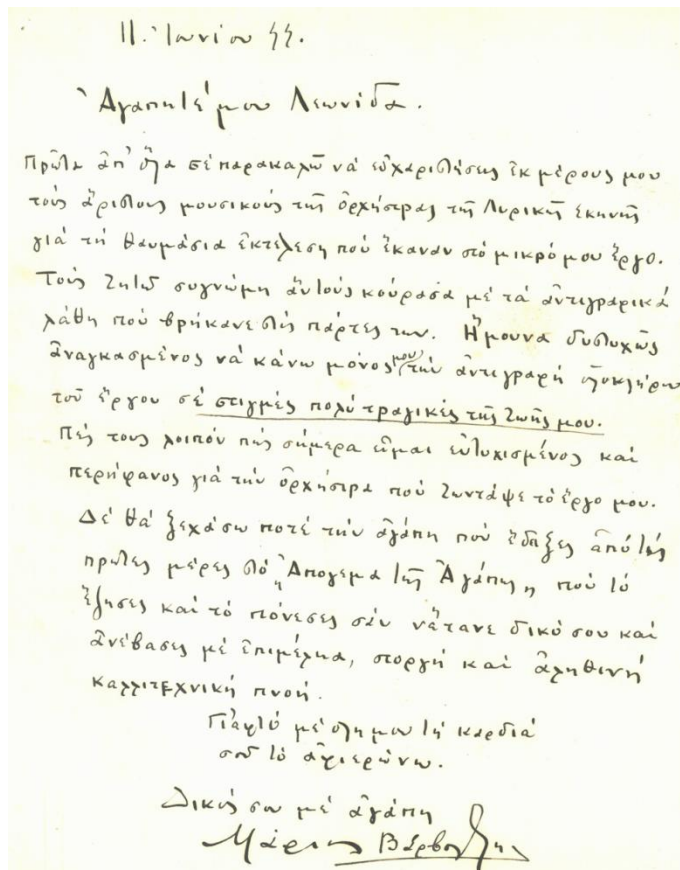 11. Ἰουνίου 44.
Ἀγαπητέ μου Λεωνίδα.
Πρῶτα ἀπ' ὅλα σὲ παρακαλῶ νὰ εὐχαριστήσεις ἐκ μέρους μου
τοὺς ἄριστους μουσικοὺς τῆς ὀρχήστρας τῆς Λυρικῆς Σκηνῆς
γιὰ τὴ θαυμάσια ἐκτέλεση ποὺ ἔκαναν στὸ μικρό μου ἔργο.
Τοὺς ζητῶ συγνώμη ἂν τοὺς κούρασα μὲ τὰ ἀντιγραφικὰ
λάθη ποὺ βρήκανε στὶς πάρτες των. Ἤμουνα δυστυχῶς
ἀναγκασμένος νὰ κάνω μόνος μου τὴν ἀντιγραφὴ ὁλοκλήρου
τοῦ ἔργου σὲ στιγμὲς πολὺ τραγικὲς τῆς ζωῆς μου.
Πές τους λοιπὸν πὼς σήμερα εἶμαι εὐτυχισμένος καὶ
περήφανος γιὰ τὴν ὀρχήστρα ποὺ ζωντάψε τὸ ἔργο μου.
Δὲ θὰ ξεχάσω ποτὲ τὴν ἀγάπη ποὺ ἔδηξες ἀπὸ τὶς
πρῶτες μέρες στὸ "Ἀπόγεμα τῆς Ἀγάπης" ποὺ τὸ
ἔζησες καὶ τὸ πόνεσες σὰν νἄτανε δικό σου καὶ
ἀνέβασες μὲ ἐπιμέλεια, στοργὴ καὶ ἀληθινὴ
καλλιτεχνικὴ πνοή.
Γι' αὐτὸ μὲ ὅλη μου τὴ καρδιὰ
σοῦ τὸ ἀφιερώνω.
Δικός σου μὲ ἀγάπη
Μάριος Βάρβογλης